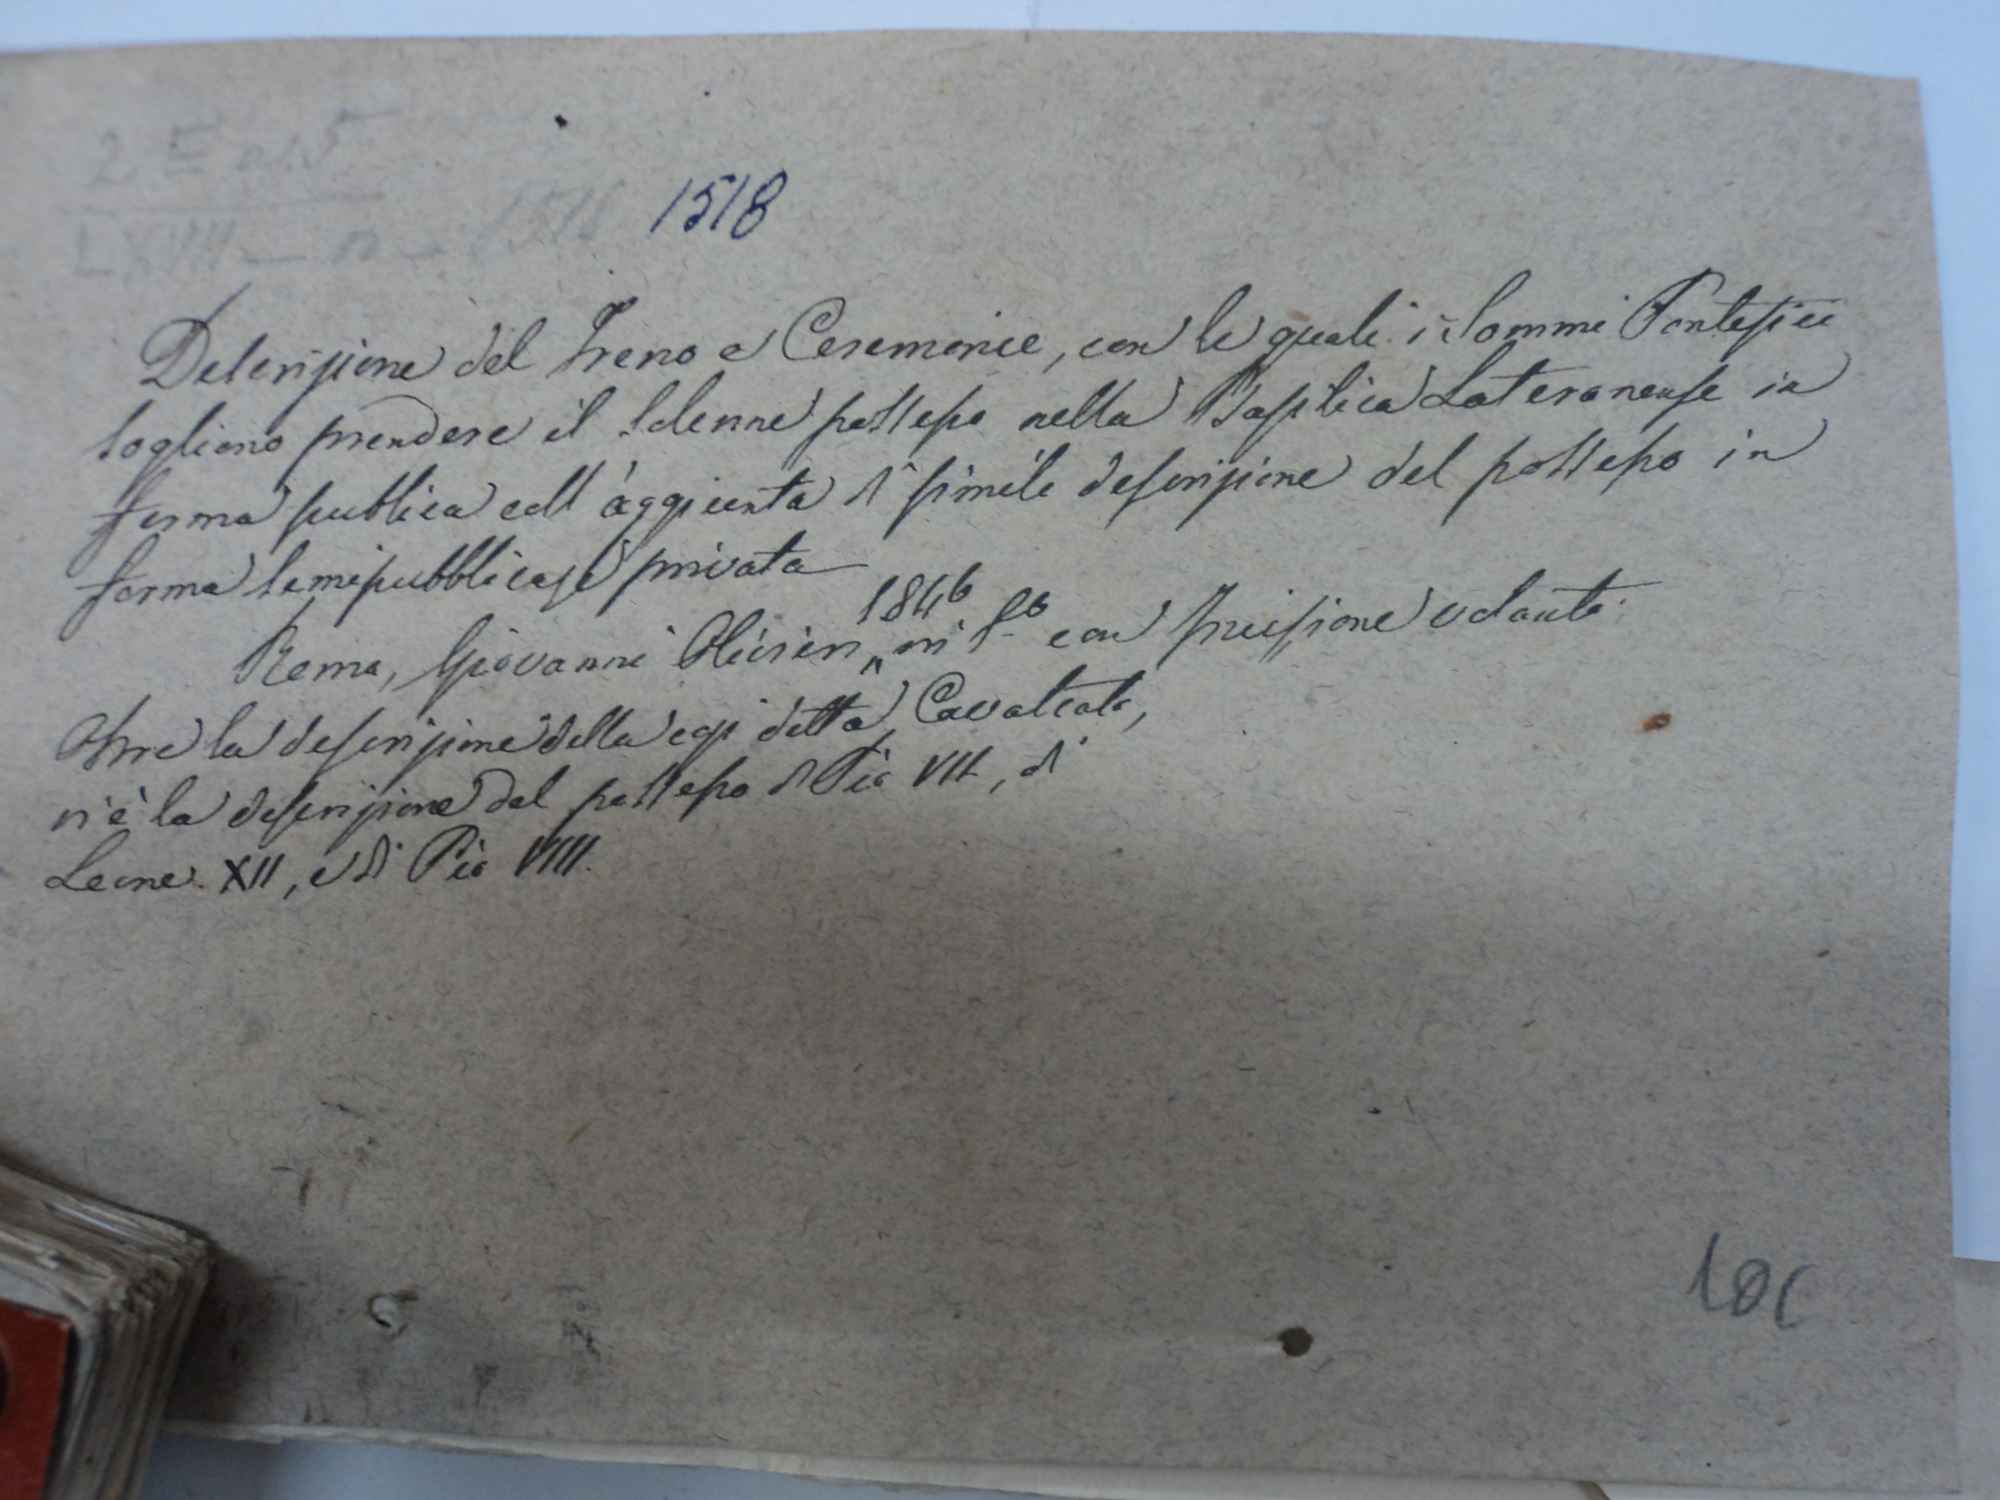 2. E or. 5
LXVIII — n — 1518
1518
Descrizione del Treno e Ceremonie, con le quali i Sommi Pontefici
sogliono prendere il solenne possesso nella Basilica Lateranense in
forma publica coll'aggiunta di simile descrizione del possesso in
forma semipubblica, e privata
Roma, Giovanni Olivieri, 1846 in 8.o con incisione volante.
Oltre la descrizione della così detta Cavalcata,
vi è la descrizione del possesso di Pio VII, di
Leone XII, e di Pio VIII.